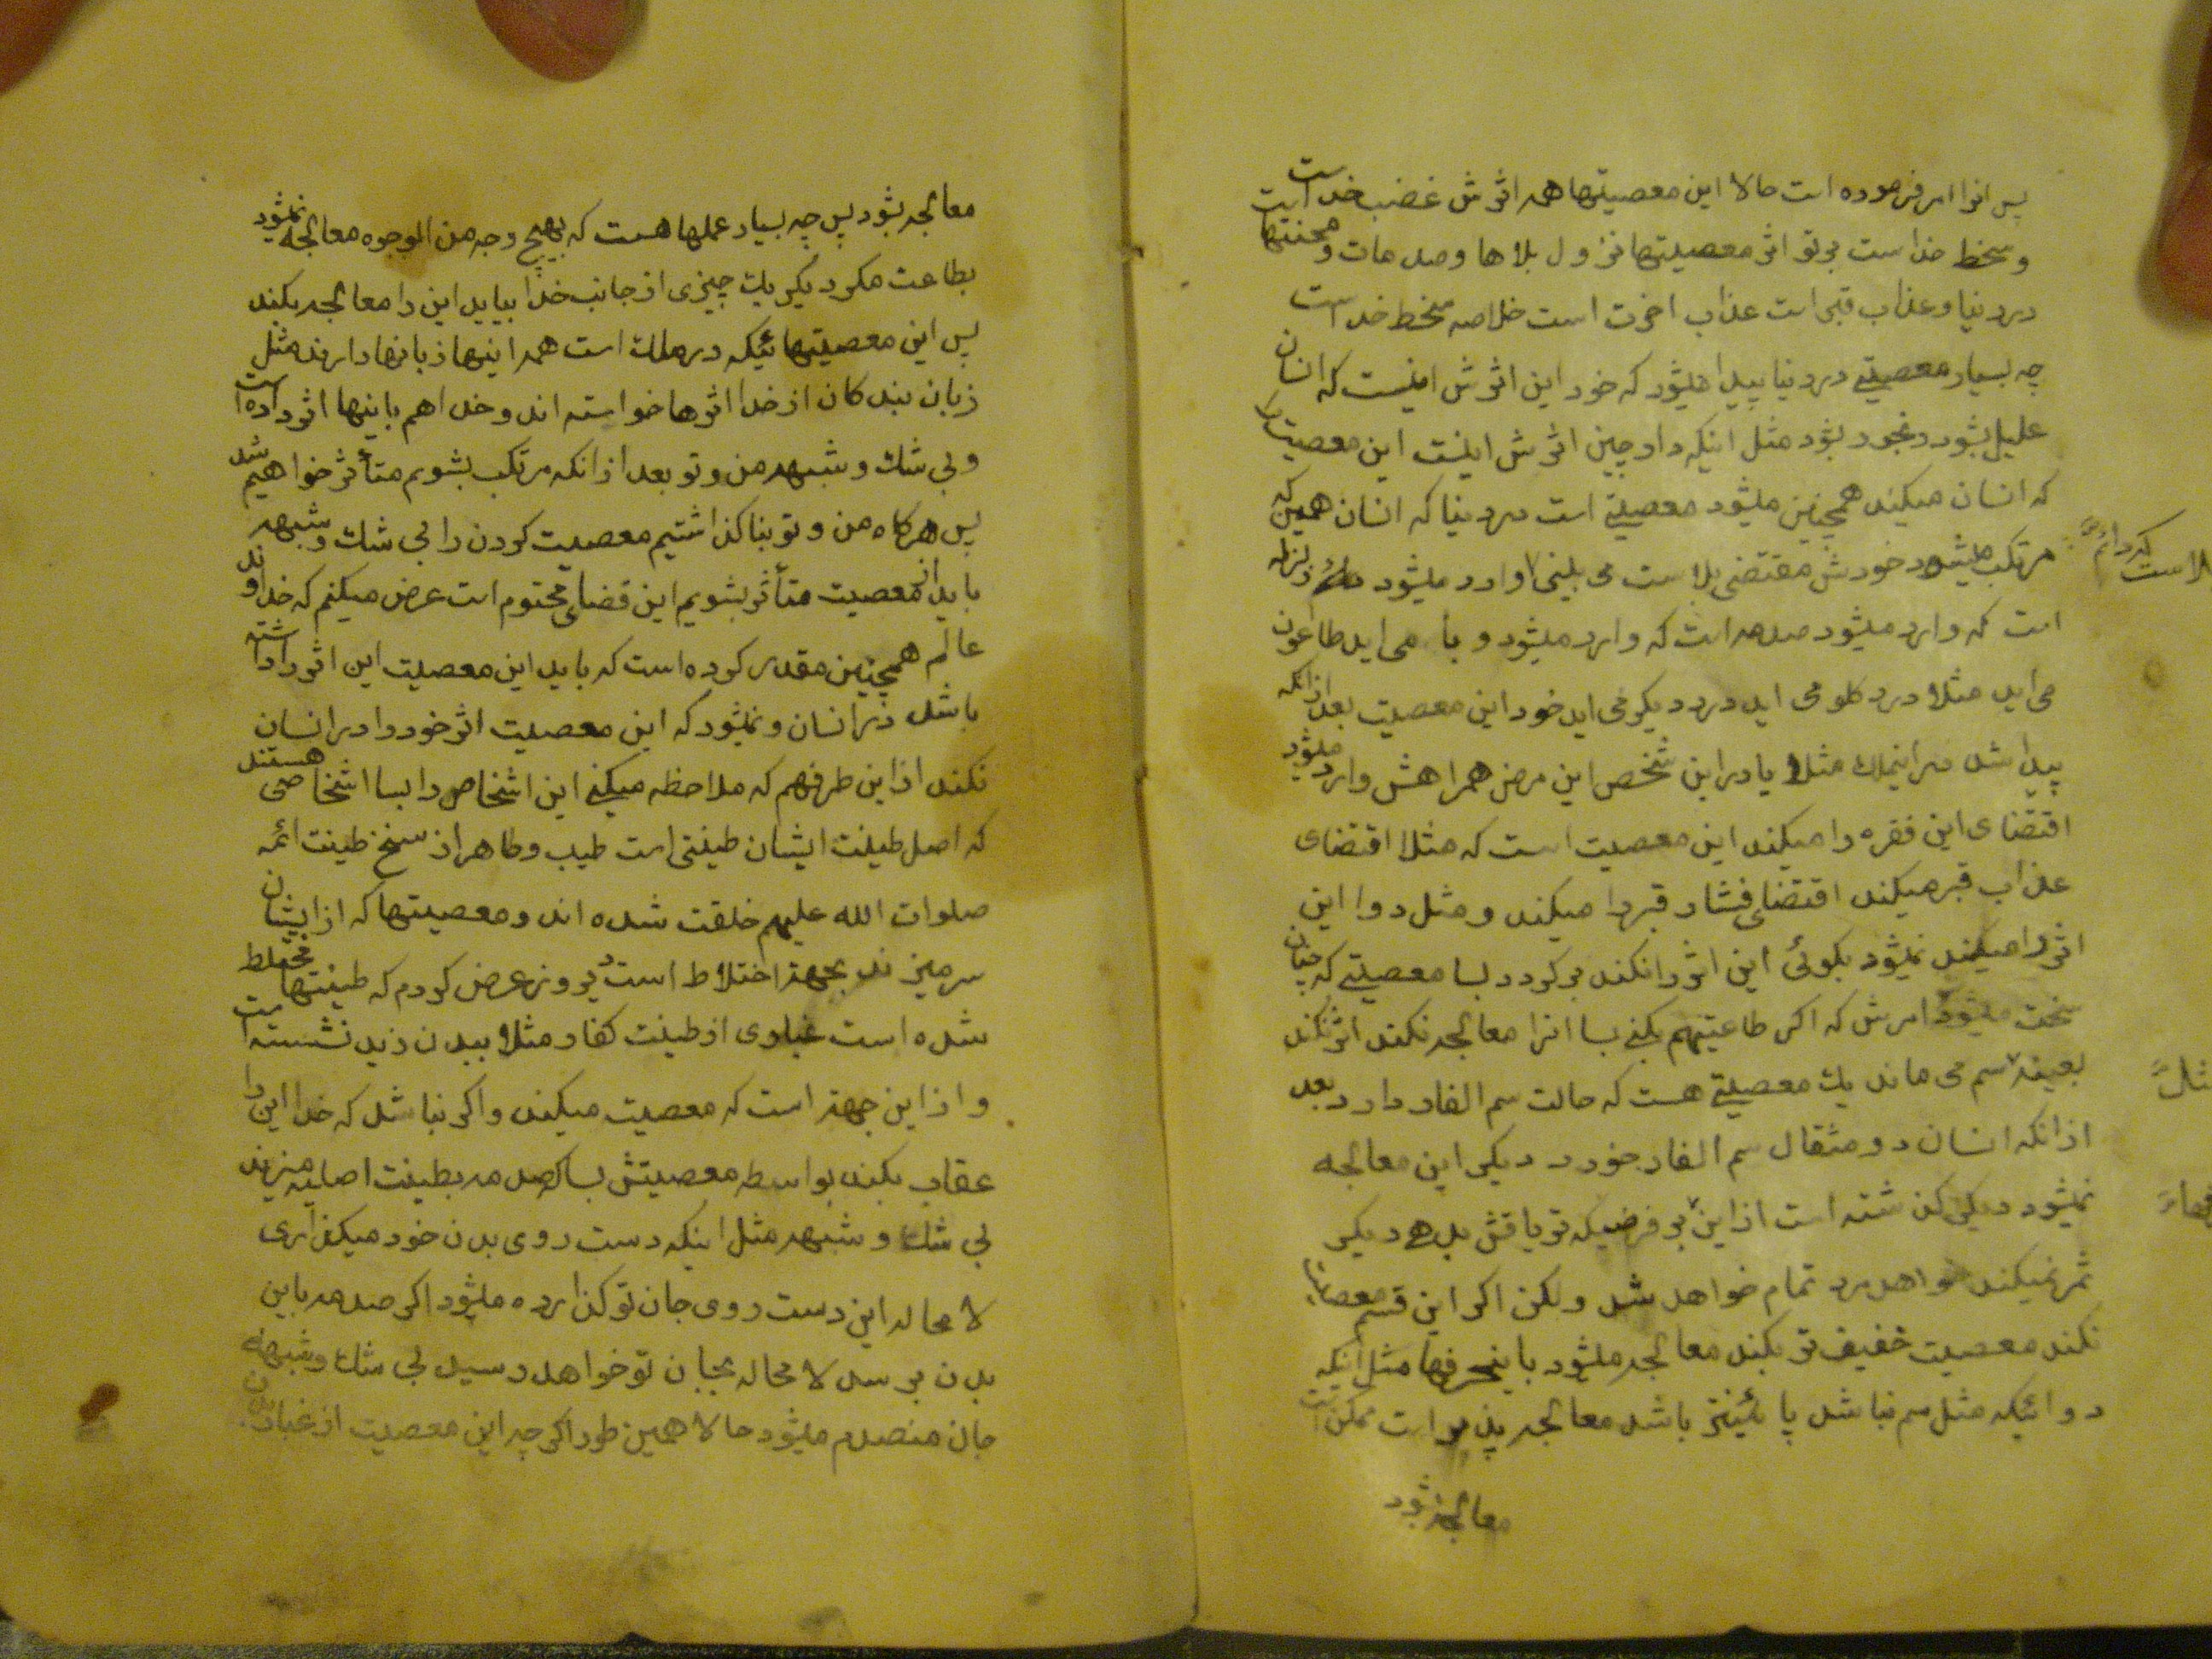 پس انرا امر فرموده است حالا این معصیتها همه اثرش غضب خداست
و سخط خداست برتو اثر معصیتها نزول بلاها و صدمات و محنتها است
در دنیا و عذاب قبر است عذاب اخرت است خلاصه سخط خداست
چه بسیار معصیتی در دنیا پیدا میشود که خود این اثرش اینست که انسان
علیل بشود رنجور بشود مثل اینکه دارچین اثرش اینست این معصیت را
که انسان میکند همچنین میشود معصیتی است در دنیا که انسان همین که
مرتکب میشود خودش مقتضی بلاست می بینی وارد میشود زلزله
است که وارد میشود صدمه است که وارد میشود وبا می اید طاعون
می اید مثلا درد کلو می اید درد دیکر می اید خود این معصیت بعد ازانکه
پیدا شد در اینملك مثلا یا در این شخص این مرض همراهش وارد میشود
اقتضای این فقره را میکند این معصیت است که مثلا اقتضای
عذاب قبر میکند اقتضای فشار قبر را میکند و مثل دوا این
اثر را میکند نمیشود بکوئی این اثر را نکند برکردد بسا معصیتی که چنان
سخت میشود امرش که اکر طاعتیهم بکنی بسا انرا معالجه نکند اثر نکند
بعینه سم می ماند یك معصیتی هست که حالت سم الفار دارد بعد
ازانکه انسان دو مثقال سم الفار خورد دیکر این معالجه
نمیشود دیکر کذشته است از این بر فرضیکه تریاقش بدهی دیکر
ثمر نمیکند خواهد مرد تمام خواهد شد ولکن اکر این قسم معصیت
نکند معصیت خفیف تر بکند معالجه میشود باینحرفها مثل انکه
دوائیکه مثل سم نباشد پائینتر باشد معالجه پذیر است ممکن است
معالجه شود
کردائم
بلاست
معالجه بشود پس چه بسیار عملها هست که بهیچ وجه من الوجوه معالجه نمیشود
بطاعت مکر دیکر یك چیزی از جانب خدا بیاید این را معالجه بکند
پس این معصیتهائیکه در ملك است همه اینها زبانها دارند مثل
زبان بندکان از خدا اثرها خواسته اند و خدا هم باینها اثر داده است
و بی شك و شبهه من و تو بعد ازانکه مرتکب بشویم متأثر خواهیم شد
پس هرکاه من و تو بنا کذاشتیم معصیت کردن را بی شك و شبهه
باید از معصیت متأثر بشویم این قضای محتوم است عرض میکنم که خداوند
عالم همچنین مقدر کرده است که باید این معصیت این اثر را داشته
باشد در انسان و نمیشود که این معصیت اثر خود را در انسان
نکند از این طرفهم که ملاحظه میکنی این اشخاص را بسا اشخاصی هستند
که اصل طینت ایشان طینتی است طیب و طاهر از سنخ طینت ائمه
صلوات الله علیهم خلقت شده اند و معصیتها که از ایشان
سر میزند بجهة اختلاط است دیروز عرض کردم که طینتها مختلط
شده است غباری از طینت کفار مثلا ببدن زید نشسته است
و از این جهة است که معصیت میکند و اکر نباشد که خدا این را
عقاب بکند بواسطه معصیتش بسا که صدمه بطینت اصلیه میزند
بی شك و شبهه مثل اینکه دست روی بدن خود میکذاری
لا محاله این دست روی جان تو کذارده میشود اکر صدمه باین
بدن برسد لا محاله بجان تو خواهد رسید بی شك و شبهه
جان منصدم میشود حالا همین طور اکر چه این معصیت از غبار بدن